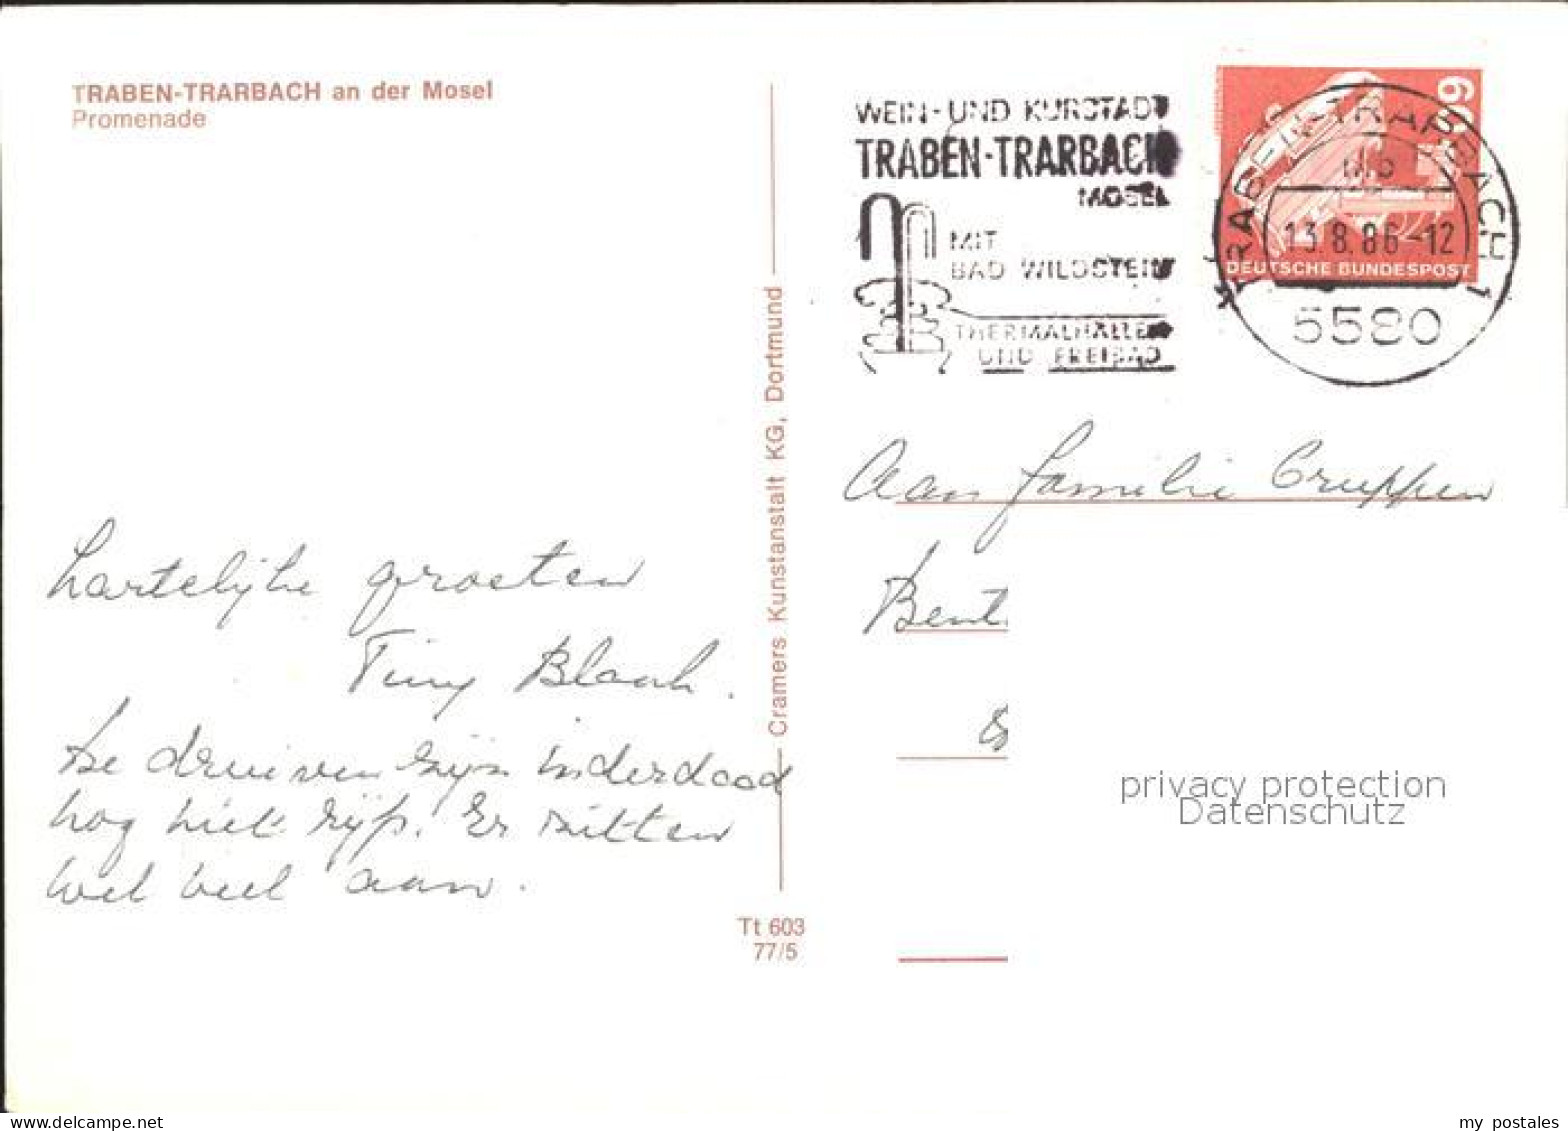 TRABEN-TRARBACH an der Mosel
Promenade
WEIN- UND KURSTADT
TRABEN-TRARBACH
MOSEL
MIT
BAD WILDSTEIN
THERMALHALLEN
UND FREIBAD
60
DEUTSCHE BUNDESPOST
TRABEN-TRARBACH 1
mb
13.8.86-12
5580
Aan familie Cruppen
Bent
hartelijke groeten
Tiny Blank.
De druiven zijn inderdaad
nog niet rijp. Er zitten
wel veel aan.
Cramers Kunstanstalt KG, Dortmund
Tt 603
77/5
privacy protection
Datenschutz
my postales